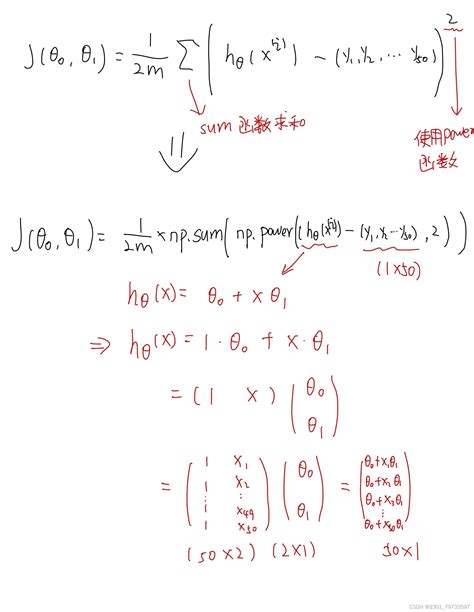 J(θ₀, θ₁) = 1/2m ∑ ( h_θ(x^(i)) − (y₁, y₂, ⋯ y₅₀) )²
sum 函数求和
使用power
函数
J(θ₀, θ₁) = 1/2m × np.sum( np.power( (h_θ(x^(i)) − (y₁, y₂ ⋯ y₅₀) , 2 ) )
(1×50)
h_θ(x) = θ₀ + x θ₁
⇒ h_θ(x) = 1·θ₀ + x·θ₁
= (1 x) (θ₀
θ₁)
= (1 x₁
1 x₂
⋮ ⋮
1 x₄₉
1 x₅₀) (θ₀
θ₁) = (θ₀+x₁θ₁
θ₀+x₂θ₁
θ₀+x₃θ₁
⋮
θ₀+x₅₀θ₁)
(50×2) (2×1) 50×1